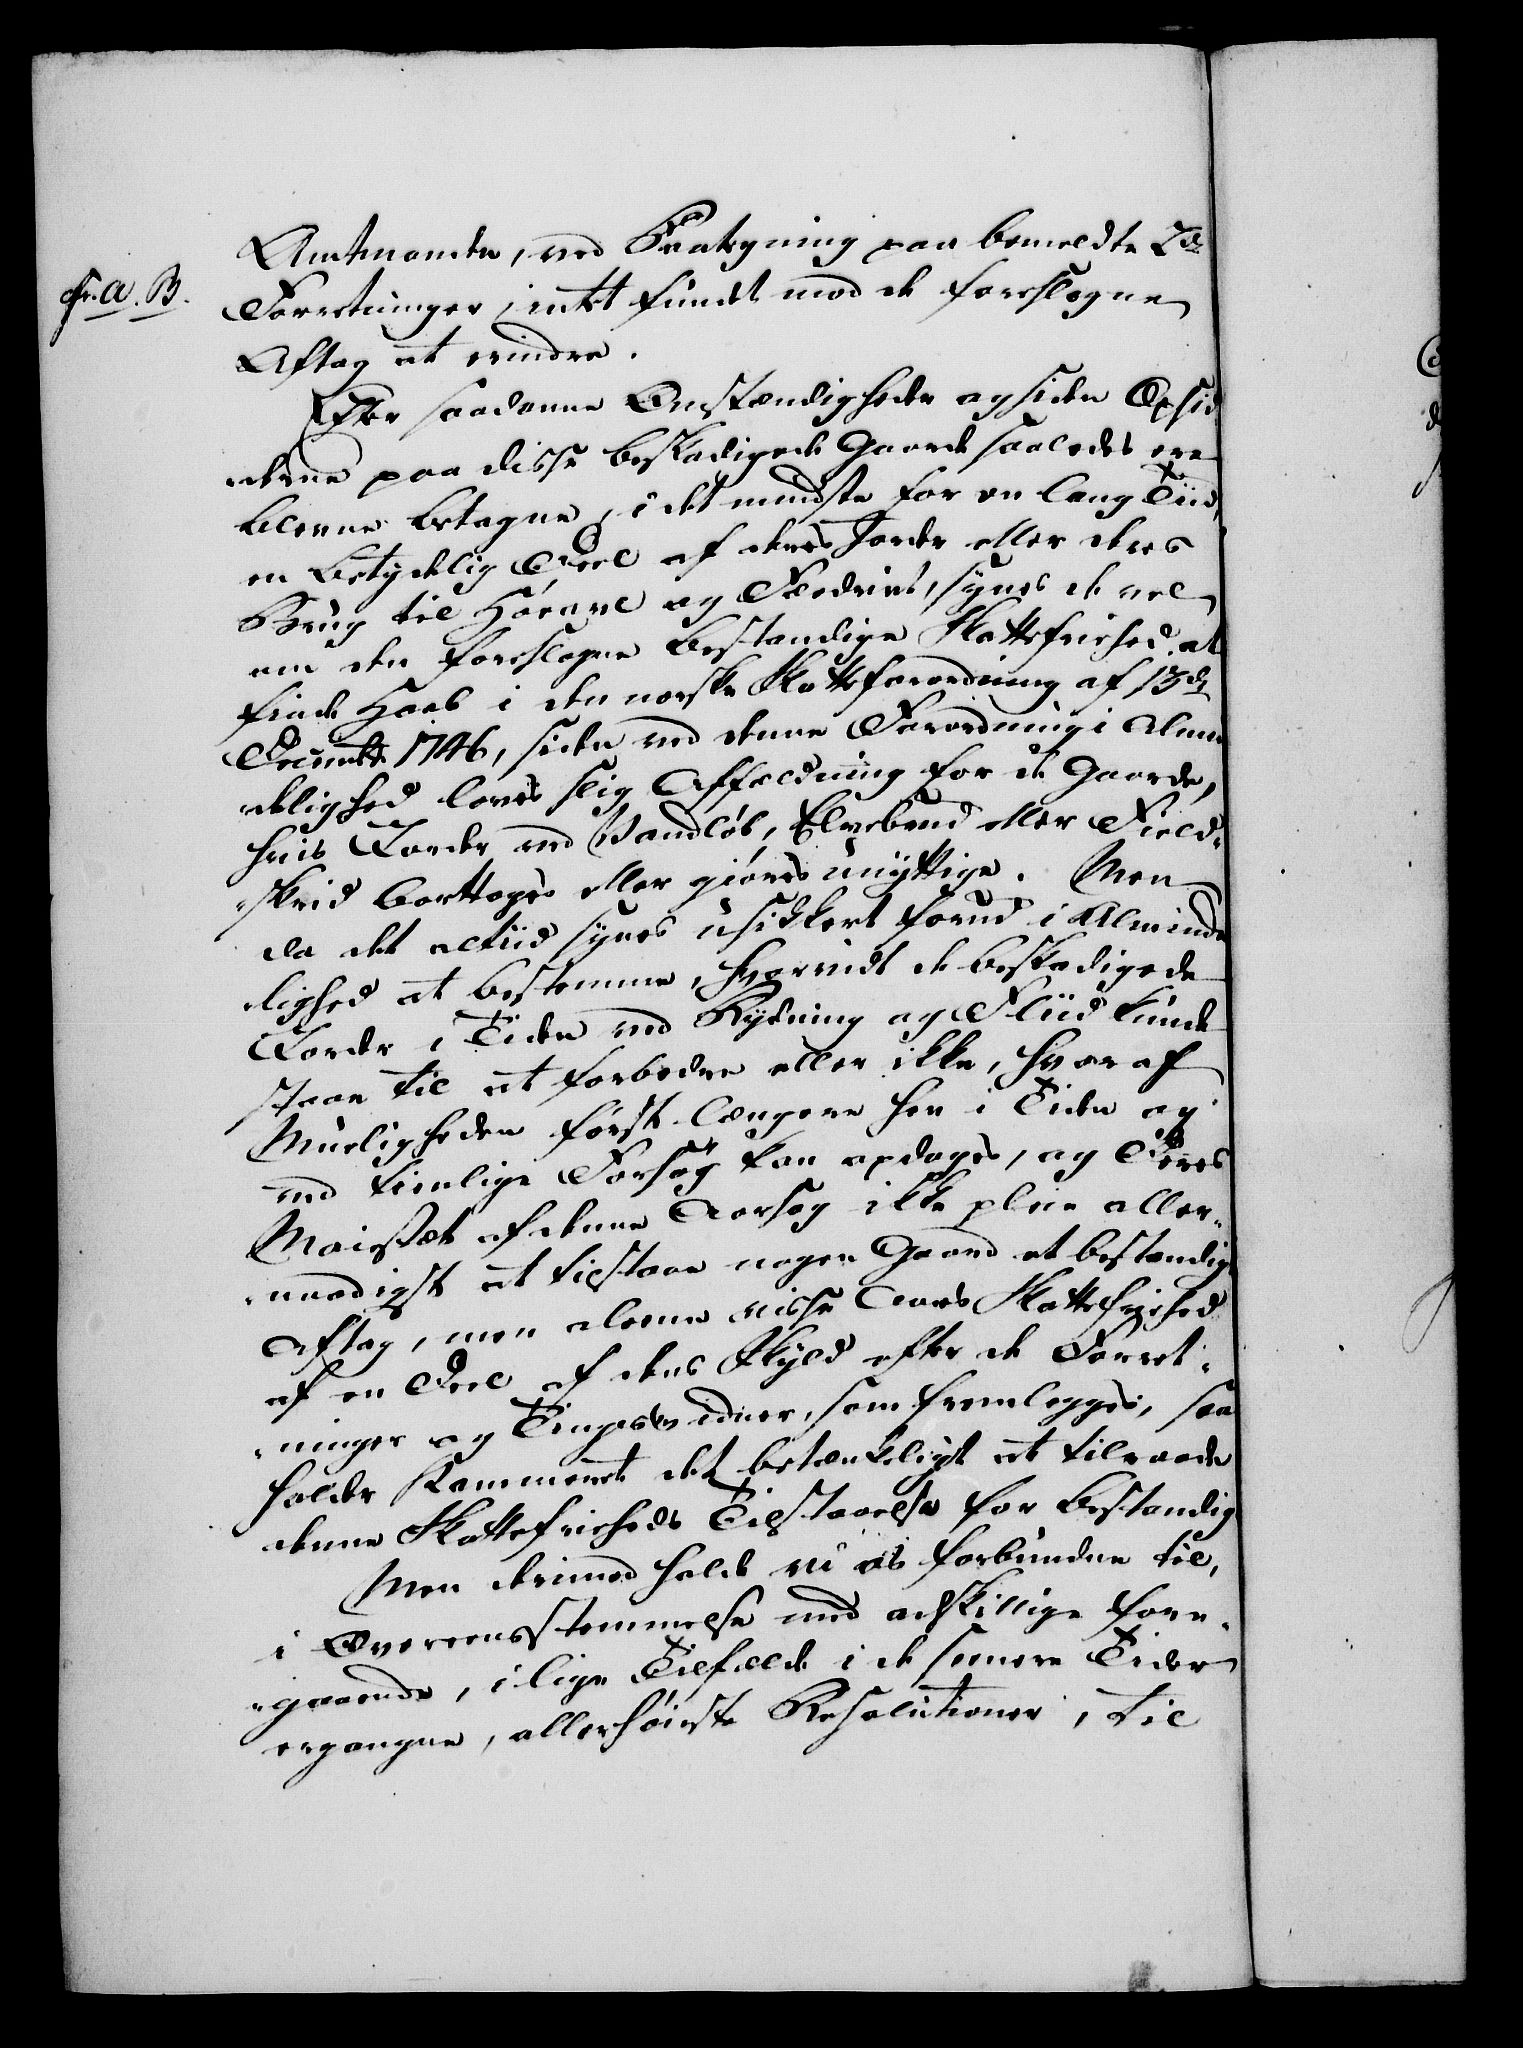 Amtmanden, ved Paategning paa bemeldte 2de
cfr. A. B.
Forretninger, intet fundet mod de foreslagne
Aftag at erindre.
Efter saadanne Omstændigheder og siden Opsid-
derne paa disse beskadigede Gaarde saaledes ere
blevne betagne, i det mindste for en lang Tiid,
en betydelig Deel af deres Jorder eller deres
Brug til Höeavl og Fædrivt, synes de vel
om den foreslagne bestandige Skattefriehed at
finde Haab i den norske Skatteforordning af 13de
Decembr 1746, siden ved denne Forordning i Almin-
delighed loves slig Affældning for de Gaarde,
hvis Jorder ved Vandlöb, Elvebrud eller Field-
skrid borttages eller giöres unyttige. Men
da det altiid synes usikkert forud i Alminde-
lighed at bestemme, hvorvidt de beskadigede
Jorder i Tiden ved Rydning og Fliid kunde
staae til at forbedre eller ikke, hvoraf
Mueligheden först længere hen i Tiden og
ved tienlige Forsög kan opdages, og Deres
Maiestæt af denne Aarsag ikke pleie aller-
naadigst at tilstaae nogen Gaard et bestandigt
Aftag, men alene visse Aars Skattefriehed
af en Deel af dens Skyld efter de Forret-
ninger og Tingsvidner, som fremlegges, saa
holder Kammeret det betænkeligt at tilraade
denne Skattefrieheds Tilstaaelse for bestandig
Men derimod holde vi os forbundne til,
i Overeensstemmelse med adskillige fore-
gaaende, i lige Tilfælde i de senere Tider
ergangne, allerhöieste Resolutioner, til